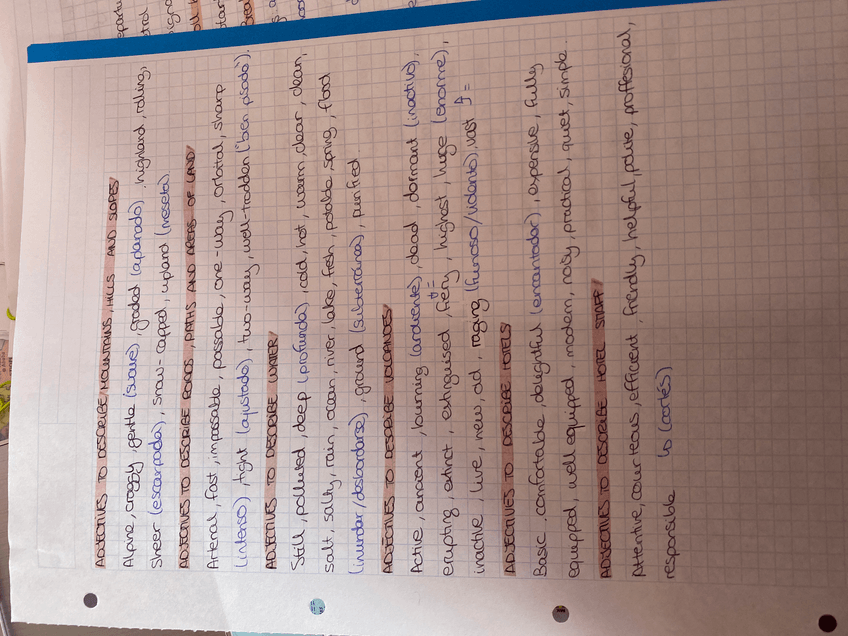 ADJECTIVES TO DESCRIBE MOUNTAINS, HILLS AND SLOPES
Alpine, craggy, gentle (suave), graded (aplanado), highland, rolling,
sheer (escarpada), snow-capped, upland (meseta).
ADJECTIVES TO DESCRIBE ROADS, PATHS AND AREAS OF LAND
Arterial, fast, impassable, passable, one-way, orbital, sharp
(intenso), tight (ajustado), two-way, well-trodden ("ben pisado").
ADJECTIVES TO DESCRIBE WATER
Still, polluted, deep (profunda), cold, hot, warm, clear, clean,
salt, salty, rain, ocean, river, lake, fresh, potable, spring, flood
(inundar/desbordarse), ground (subterránea), purified.
ADJECTIVES TO DESCRIBE VOLCANOES
Active, ancient, burning (ardiente), dead, dormant (inactivo),
erupting, extinct, extinguised, fiery, highest, huge (enorme),
inactive, live, new, old, raging (furioso/violento), vast =
ADJECTIVES TO DESCRIBE HOTELS
Basic, confortable, delightful (encantador), expensive, fully
equipped, well equipped, modern, noisy, practical, quiet, simple.
ADJECTIVES TO DESCRIBE HOTEL STAFF
Attentive, courteous, efficient, friendly, helpful, polite, proffesional,
responsible ↳ (cortés)